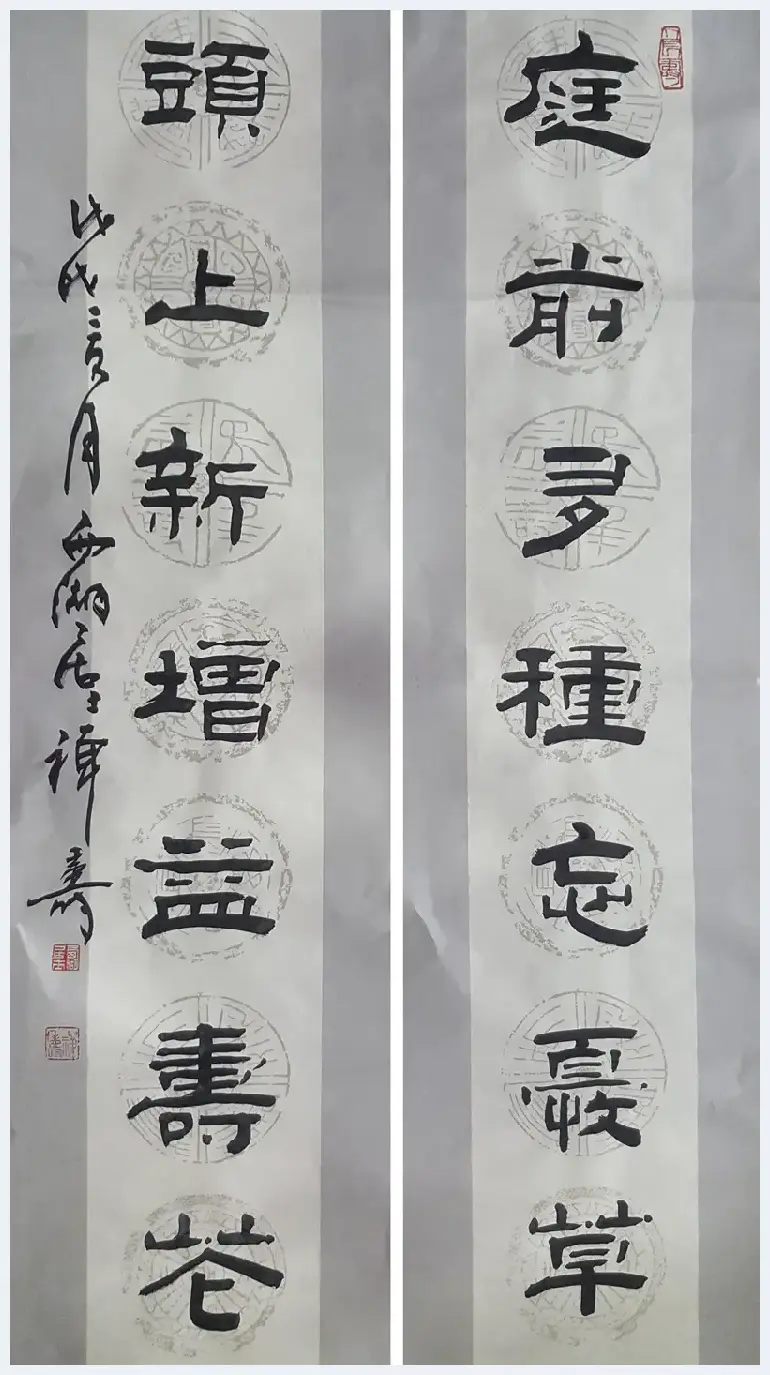 庭前多種忘憂草
頭上新增益壽花
戊戌 月西湖居士禅壽